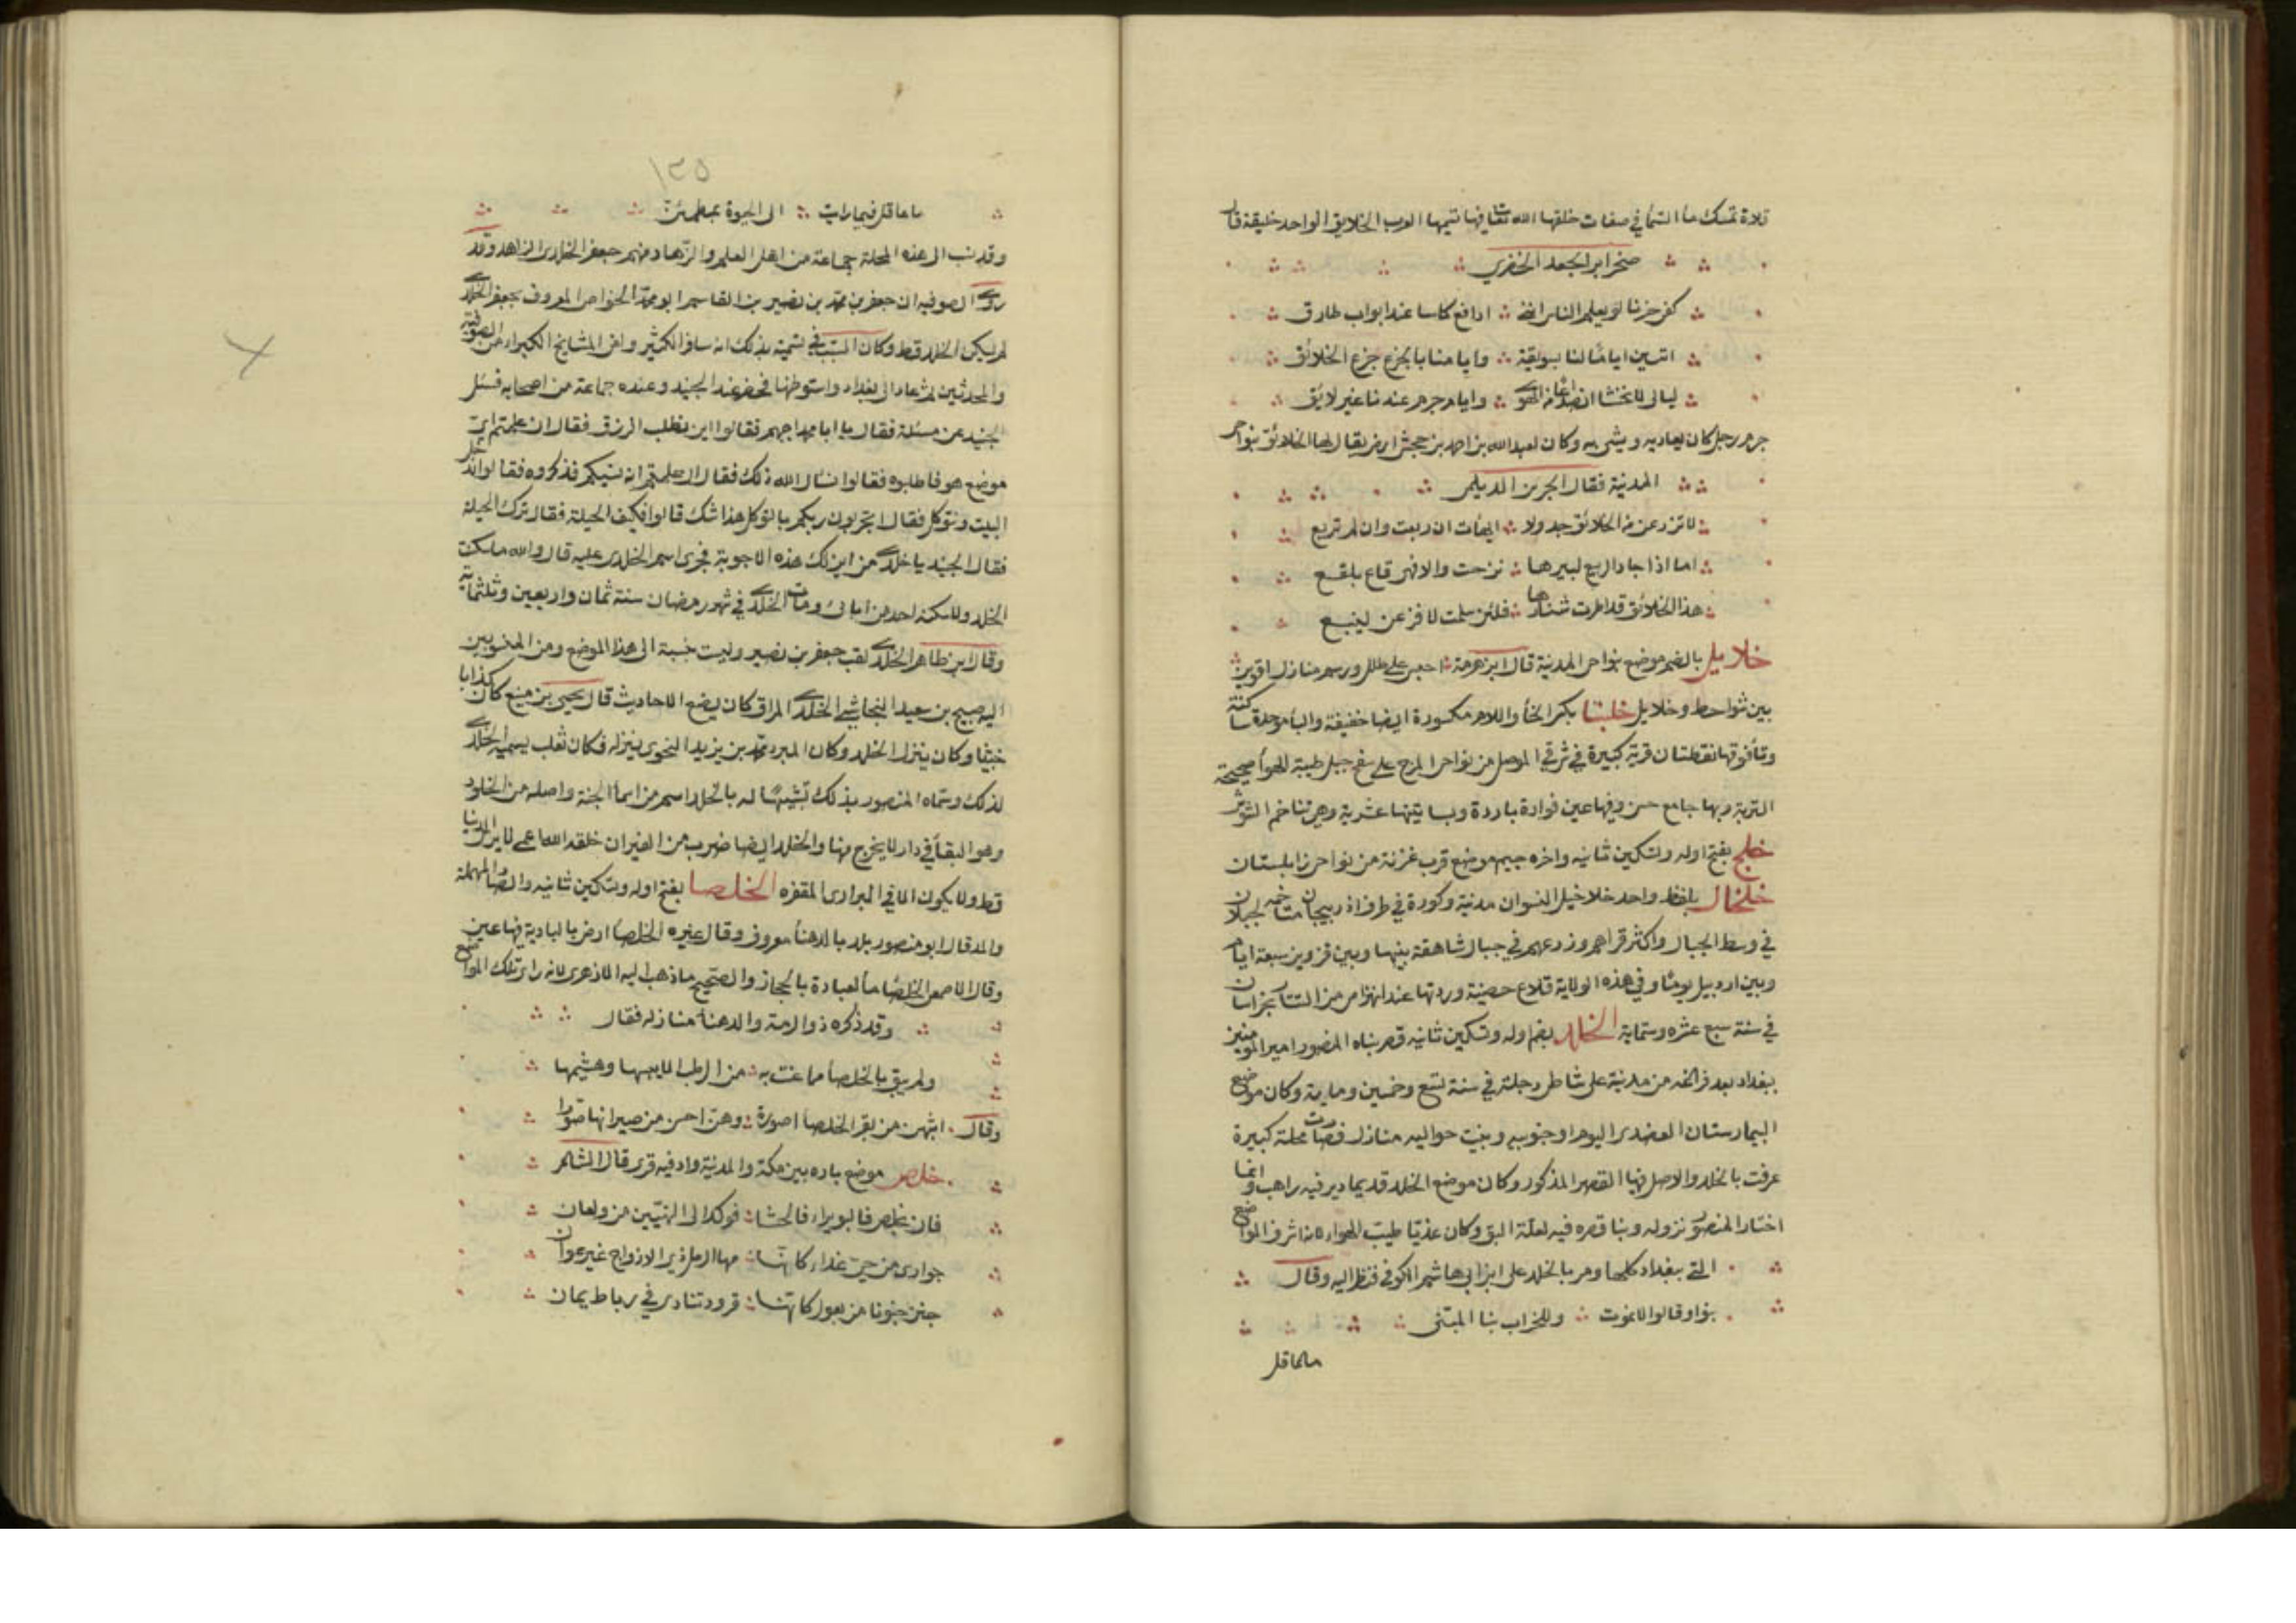 قلاة تمسك ماٴ السّماٴ في صفات خلقها الله تعا فيها تسيمها العرب الخلايق الواحد خليقة قال
صخر ابن الجعد الخضري
كفى حزنا لو يعلم الناس اننى ادافع كاسا عند ابواب طارق
اتنسين ايامًا لنا بسويقة وايامنا بالجزع جزع الخلائق
ليالى لا نخشا انصداعا من الهوى وايام جرم عندنا غير لايق
جرم رجل كان يعاديه ويشى به وكان لعبد الله بن احمد بن جحش ارض يقال لها الخلائق بنواحى
المدنية فقال الحزين الديلى
لا تزرعن من الخلائق جدولا ايهات ان ربعت وان لم تربع
اما اذا جاد الربيع لبيرها نزحت والا فهى قاع بلقع
هذا الخلائق قد اطرت شنارها فلئن سلمت لافزعن لينبع
خلايل بالضم موضع بنواحى المدنية قال ابن هرمة احبس على طلل ورسم منازل اقوين
بين شواحط وخلايل خلبتا بكسر الخاٴ واللام مكسورة ايضا خفيفة والباٴ موحدة ساكنة
وتاٴ فوقها نقطتان قرية كبيرة في شرقي الموصل من نواحى المرج على سفح جبل طيبة الهواٴ صحيحة
التربة وبها جامع حسن وفيها عين فوارة باردة وبساتينها عثرية وهى تتاخم الشوش
خلج بفتح اوله وتسكين ثانيه واخره جيم موضع قرب غزنة من نواحى زابلستان
خلخال بلفظ واحد خلاخيل النسوان مدنية وكورة في طرف اذربيجان متاخمة لجيلان
في وسط الجبال واكثر قراهم وزرعهم في جبال شاهقة بينها وبين قزوين سبعة ايام
وبين اردبيل يومان وفي هذه الولاية قلاع حصينة وردتها عند انهزامى من التتار بخراسان
في سنة سبع عشره وستماية الخلد بضم اوله وتسكين ثانيه قصر بناه المنصور امير المومنين
ببغداد بعد فراغه من مدنية على شاطى دجلة في سنة تسع وخمسين وماية وكان موضع
البيمارستان العضدى اليوم او جنوبيه وبنيت حواليه منازل فصارت محلة كبيرة
عرفت بالخلد والاصل فيها القصر المذكور وكان موضع الخلد قديما دير فيه راهب وانما
اختار المنصور نزوله وبنا قصره فيه لعلة البق وكان عذيا طيب الهواء لانه اشرف المواضع
التي ببغداد كلها ومر بالخلد على ابن ابي هاشم الكوفي فنظر اليه وقال
بنوا وقالوا لا نموت وللخراب بنا المبتنى
ما عاقل
١٢٥
ما عاقل فيما رايت الى الحيوة بمطمئن
وقد نسب الى هذه المحلة جماعة من اهل العلم والزهاد منهم جعفر الخلدى الزاهد وقد
روى الصوفيه ان جعفر بن محمد بن نصير بن القاسم ابو محمد الخواص المعروف بجعفر الخلدى
لم يسكن الخلد قط وكان السبب في تسميته بذلك انه سافر الكثير ولقى المشايخ الكبراء من الصوفية
والمحدثين ثم عاد الى بغداد واستوطنها فحضر عند الجنيد وعنده جماعة من اصحابه فسئل
الجنيد عن مسئلة فقال يا ابا محمد اجبهم فقالوا اين نطلب الرزق فقال ان علمتم اى
موضع هو فاطلبوه فقالوا نسال الله ذلك فقال ان علمتم انه نسيكم فذكروه فقالوا ندخل
البيت ونتوكل فقال اتجربون ربكم بالتوكل هذا شك قالوا فكيف الحيلة فقال ترك الحيلة
فقال الجنيد يا خلدى من اين لك هذه الاجوبة فجرى اسم الخلدى عليه قال والله ما سكنت
الخلد ولا سكنه احد من ابائى ومات الخلدى في شهر رمضان سنة ثمان واربعين وثلثماية
وقال ابن طاهر الخلدى لقب جعفر بن نصير وليست بنسبة الى هذا الموضع ومن المنسوبين
اليه صبيح بن سعيد النجاشى الخلدى المراق كان يضع الاحاديث قال يحيى بن معين كان كذابا
خبيثا وكان ينزل الخلد وكان المبرد محمد بن يزيد النحوى ينزله فكان ثعلب يسميه الخلدى
لذلك وسماه المنصور بذلك تشبيهًا له بالخلد اسم من اسماٴ الجنة واصله من الخلود
وهو البقاٴ في دار لا يخرج منها والخلد ايضا ضرب من الفيران خلقه الله اعمى لا يرى الدنيا
قط ولا يكون الا في البرارى المقفره الخلصا بفتح اوله وتسكين ثانيه والصاد المهملة
والمد قال ابو منصور بلد بالدهناٴ معروف وقال غيره الخلصاٴ ارض بالبادية فيها عين
وقال الاصمعى الخلصاٴ ماٴ لعبادة بالحجاز والصحيح ما ذهب اليه الازهرى لانه راى تلك المواضع
وقد ذكره ذو الرمة والدهناٴ منازله فقال
ولم يبق بالخلصاٴ مما عنت به من الرطب الا يبسها وهشيمها
وقال اشبهن من بقر الخلصاٴ اصورة وهن احسن من صيرانها صورا
خلص موضع باره بين مكة والمدينة واد فيه قرى قال الشاعر
فان بخلص فالبويراء فالحشا فوكد الى النهيين من وبعان
جوارى من حى عداء كانها مها الرمل ذى الازواج غير عوان
جنن جنونا من بعول كانها قرود تنادى في رباط يمان